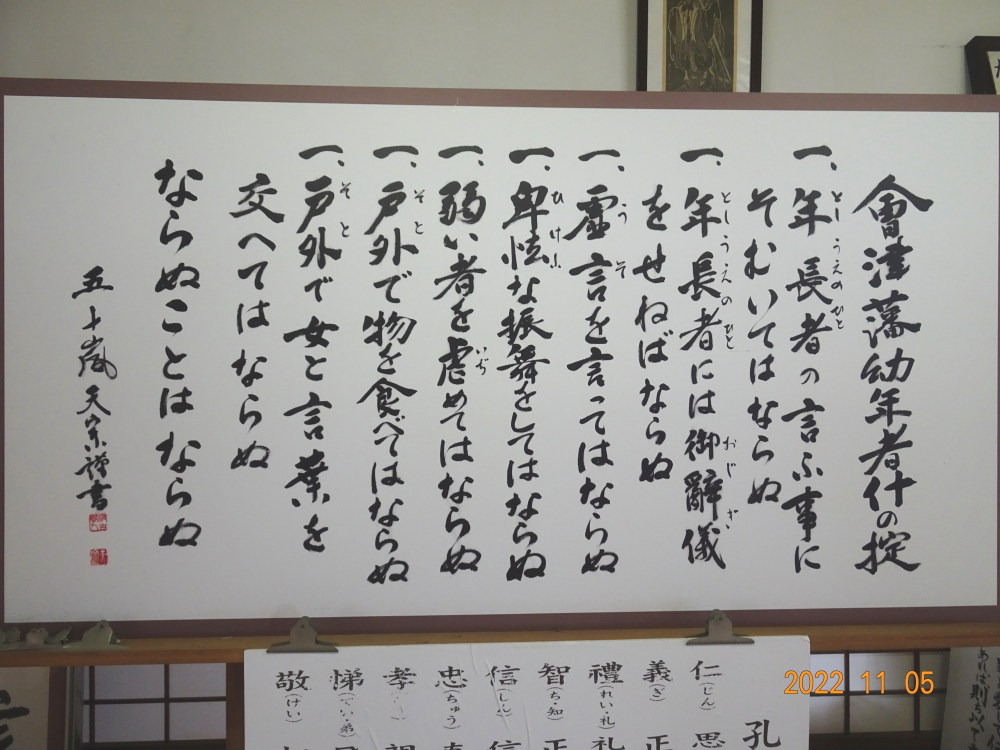 會津藩幼年者什の掟
一、年長者の言ふ事に
としうえのひと
そむいてはならぬ
一、年長者には御辭儀
としうえのひと おじぎ
をせねばならぬ
一、虚言を言ってはならぬ
うそ
一、卑怯な振舞をしてはならぬ
ひけふ
一、弱い者を虐めてはならぬ
いぢ
一、戸外で物を食べてはならぬ
そと
一、戸外で女と言葉を
そと
交へてはならぬ
ならぬことはならぬ
五十嵐天宗謹書
孔
仁(じん)思
義(ぎ)正
禮(れい・礼)礼
智(ち・知)正
信(しん)信
忠(ちゅう)
孝
悌
敬(けい)
2022 11 05